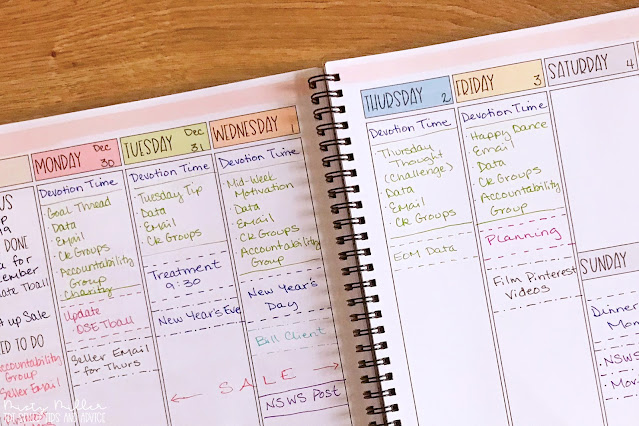 US
P
19
DONE
a for
cember
date Tball
t up Sale
ED TO DO
Accountability
Group
Seller Email
MONDAY Dec 30
Devotion Time
Goal Thread
· Data
· Email
· CK Groups
· Accountability
Group
· Charity
Update
DSE Tball
Seller Email
for Thurs
TUESDAY Dec 31
Devotion Time
· Tuesday Tip
Data
Email
CK Groups
Treatment
9:30
New Year's Eve
WEDNESDAY 1
Devotion Time
Mid-Week
Motivation
· Data
· Email
· CK Groups
Accountability
Group
New Year's
Day
Bill Client
← SALE →
NSWS Post
THURSDAY 2
Devotion Time
Thursday
Thought
(Challenge)
· Data
· Email
· CK Groups
ECM Data
FRIDAY 3
Devotion Time
· Happy Dance
Email
· Data
· CK Groups
· Accountability
Group
Planning
Film Pinterest
Videos
SATURDAY 4
SUNDAY
Dinner
Mon
NSWS
Mor
Misty Miller
KIDS AND ADVICE